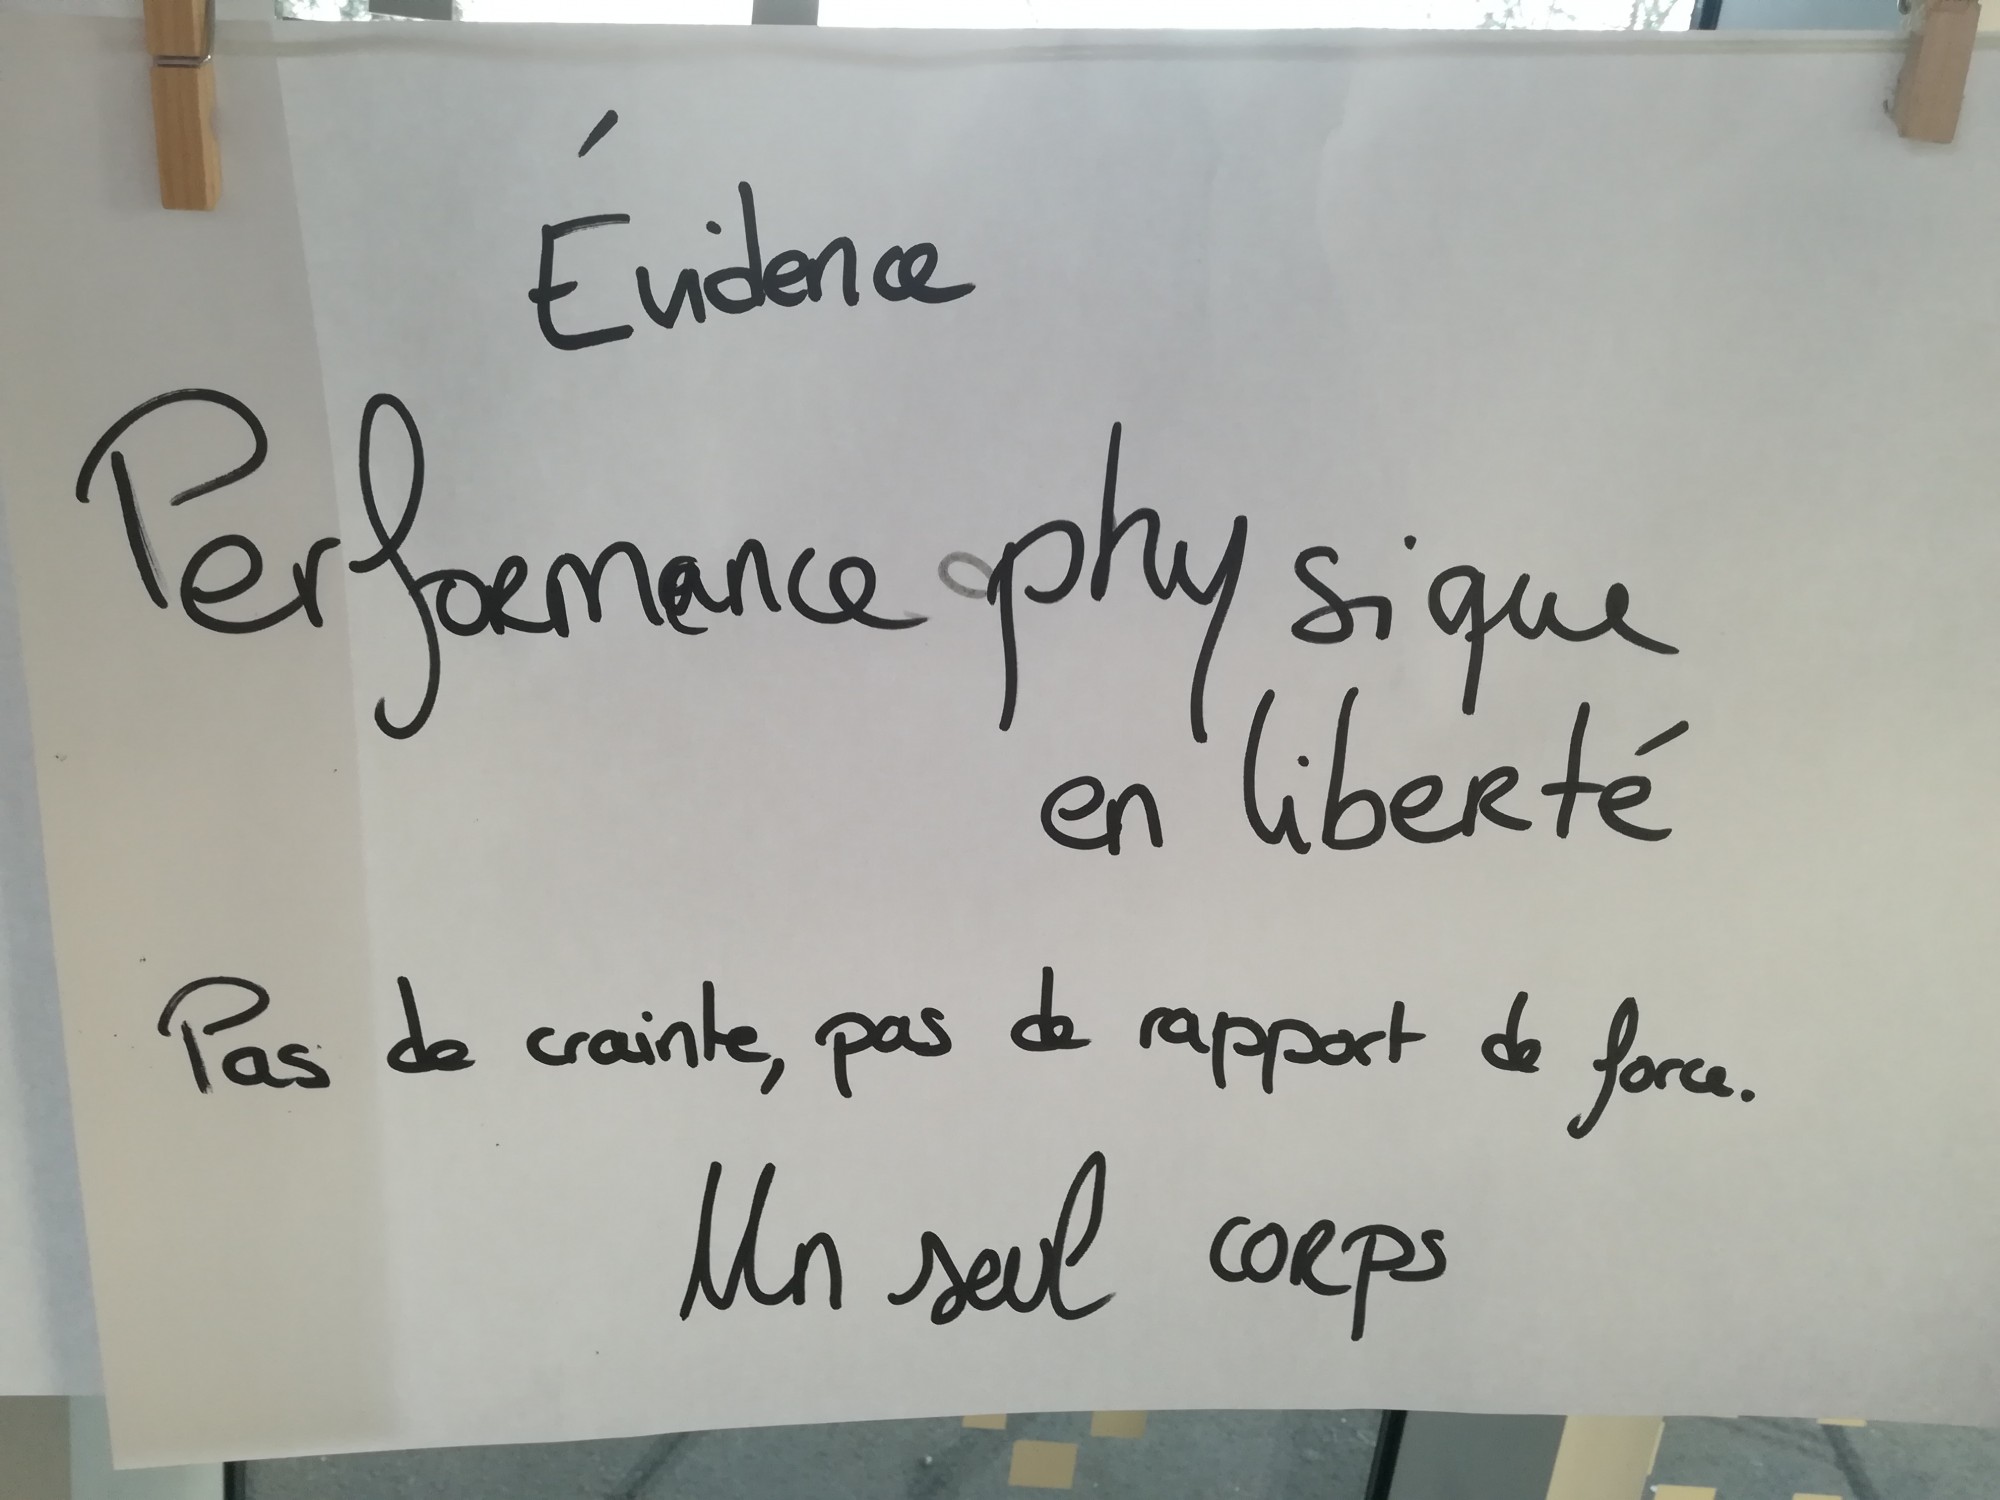 Évidence
Performance physique
en liberté
Pas de crainte, pas de rapport de force.
Un seul corps